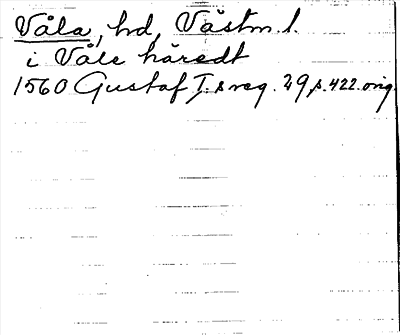 Våla, hd, Västm. l.
i Våle häredt
1560 Gustaf I:s reg. 29 s. 422. orig.